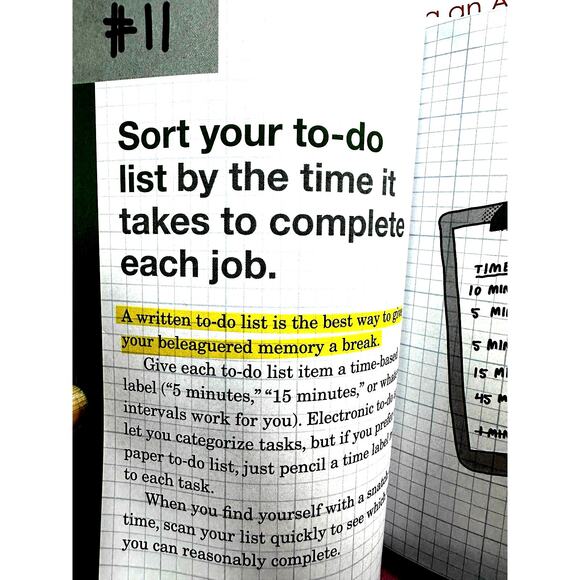 #11
an A
Sort your to-do
list by the time it
takes to complete
each job.
A written to-do list is the best way to
your beleaguered memory a break.
Give each to-do list item a
label ("5 minutes," "15 minutes," or
intervals work for you). Electronic to-do
let you categorize tasks, but if you
paper to-do list, just pencil a time label
to each task.
When you find yourself with a
time, scan your list quickly to see which
you can reasonably complete.
TIME
10 MIN
5 MIN
5 MIN
15 M
45 M
1 MIN